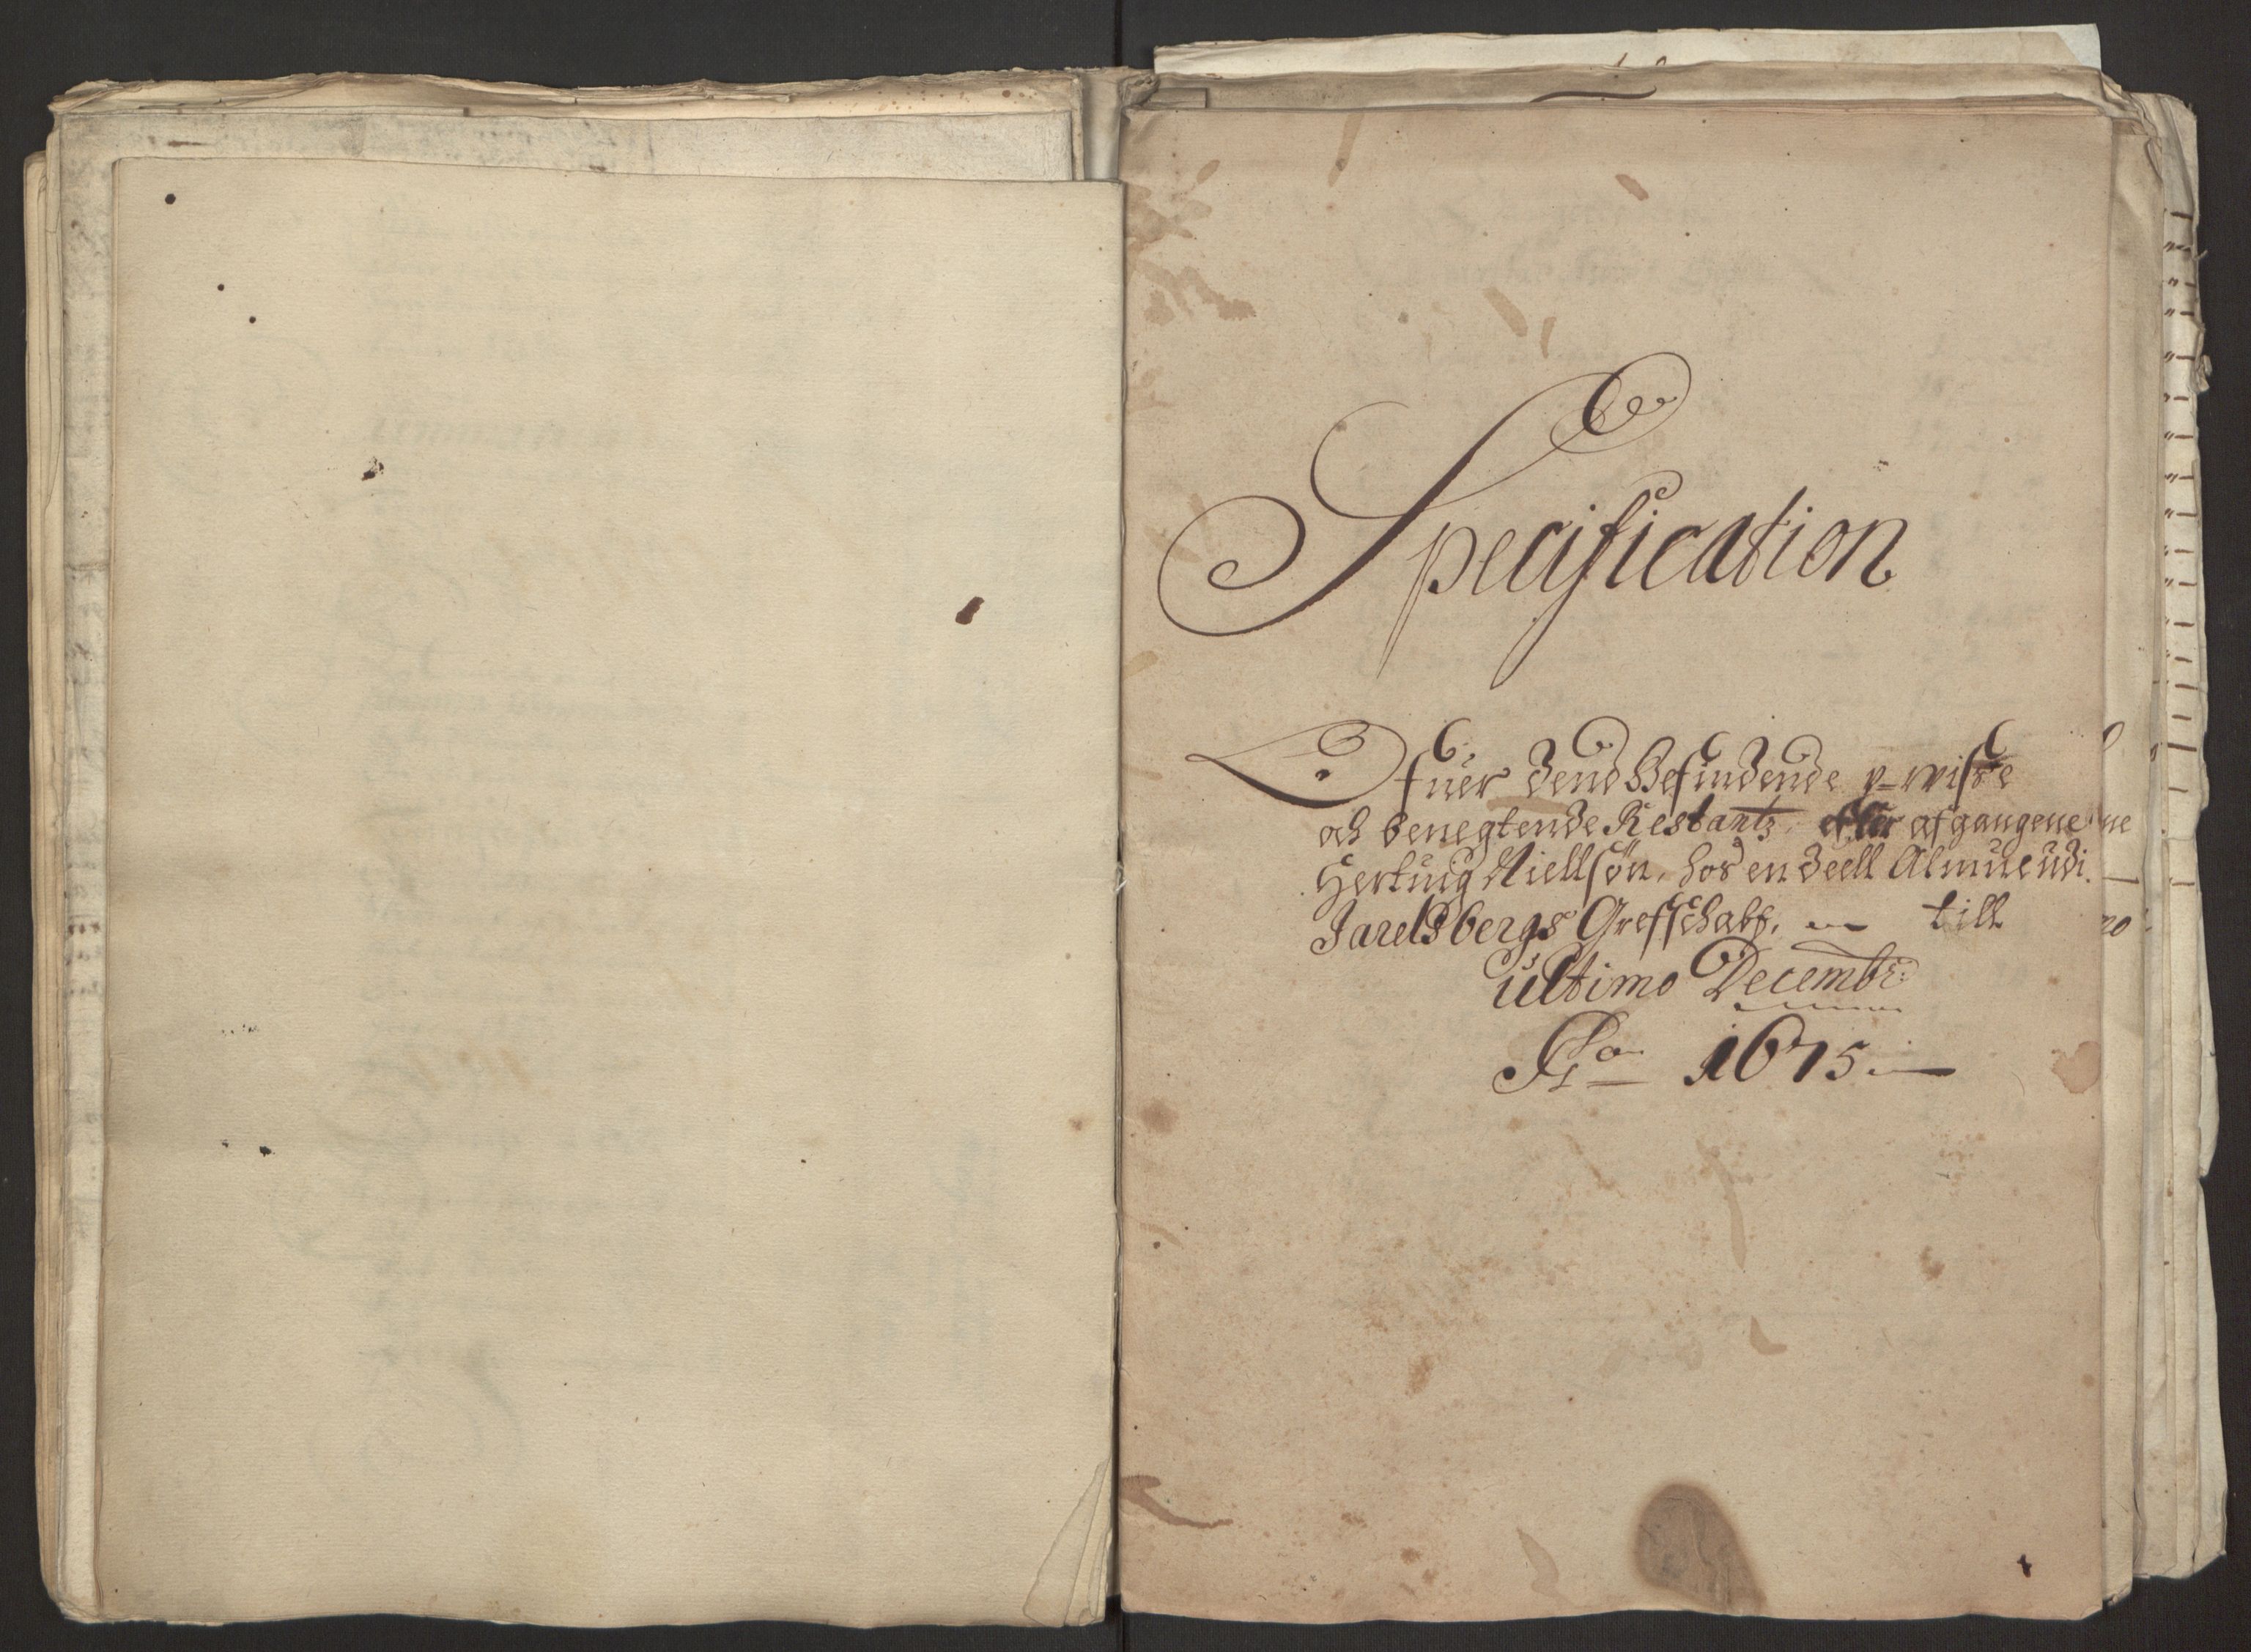 Specification
Ofuer dend Befindende v-wisse
och benegtende Restantz, efter afgangene
Hertuig Niellsøn, hos en deell Almue udi
Jarelsbergs Grefschab, till
ultimo Decembr:
Ao 1675